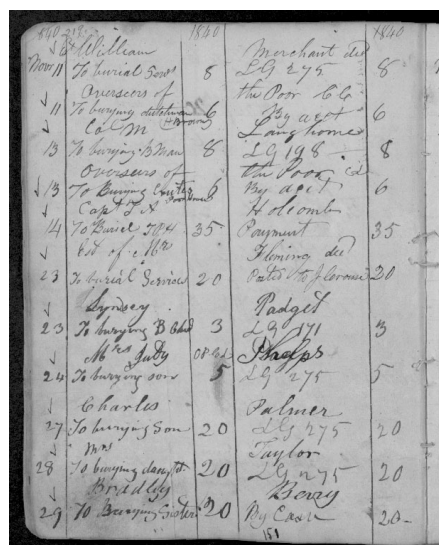 1840 1840 1840
William Merchant decd
Novr 11 To burial Sons 8 LG 275 8
Overseers of the Poor
11 To burying 6 By acct 6
Col M Langhorne
13 To burying B Man 8 LG 198 8
Overseers of the Poor
13 To Burying 6 By acct 6
Capt Holcomb
14 To Burial 35 Payment 35
Est of Mr Fleming decd
23 To burial Services 20 Posted to J 20
Lynsey Padget
23 To burying B Chd 3 LG 171 3
Mrs Judy Phelps
24 To burying son 5 LG 275 5
Charles Palmer
27 To burying Son 20 LG 275 20
Mrs Taylor
28 To burying daugt 20 LG 275 20
Bradley Berry
29 To Burying Sister 20 By Cash 20
151